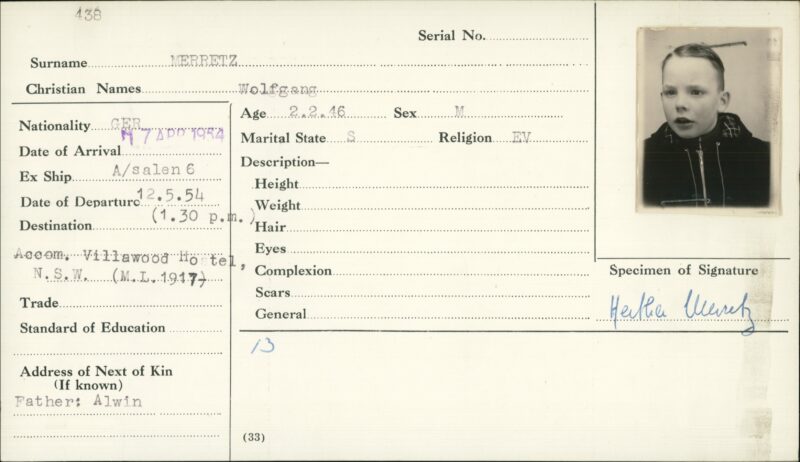 438
Serial No.
Surname MERRETZ
Christian Names Wolfgang
Nationality GER
17 APR 1954
Date of Arrival
Ex Ship A/salen 6
Date of Departure 12.5.54
(1.30 p.m.)
Destination
Accom. Villawood Hostel,
N.S.W. (M.L.1917)
Trade
Standard of Education
Address of Next of Kin
(If known)
Father: Alwin
Age 2.2.46 Sex M
Marital State S Religion EV
Description—
Height
Weight
Hair
Eyes
Complexion
Scars
General
13
(33)
Specimen of Signature
Hertha Merretz